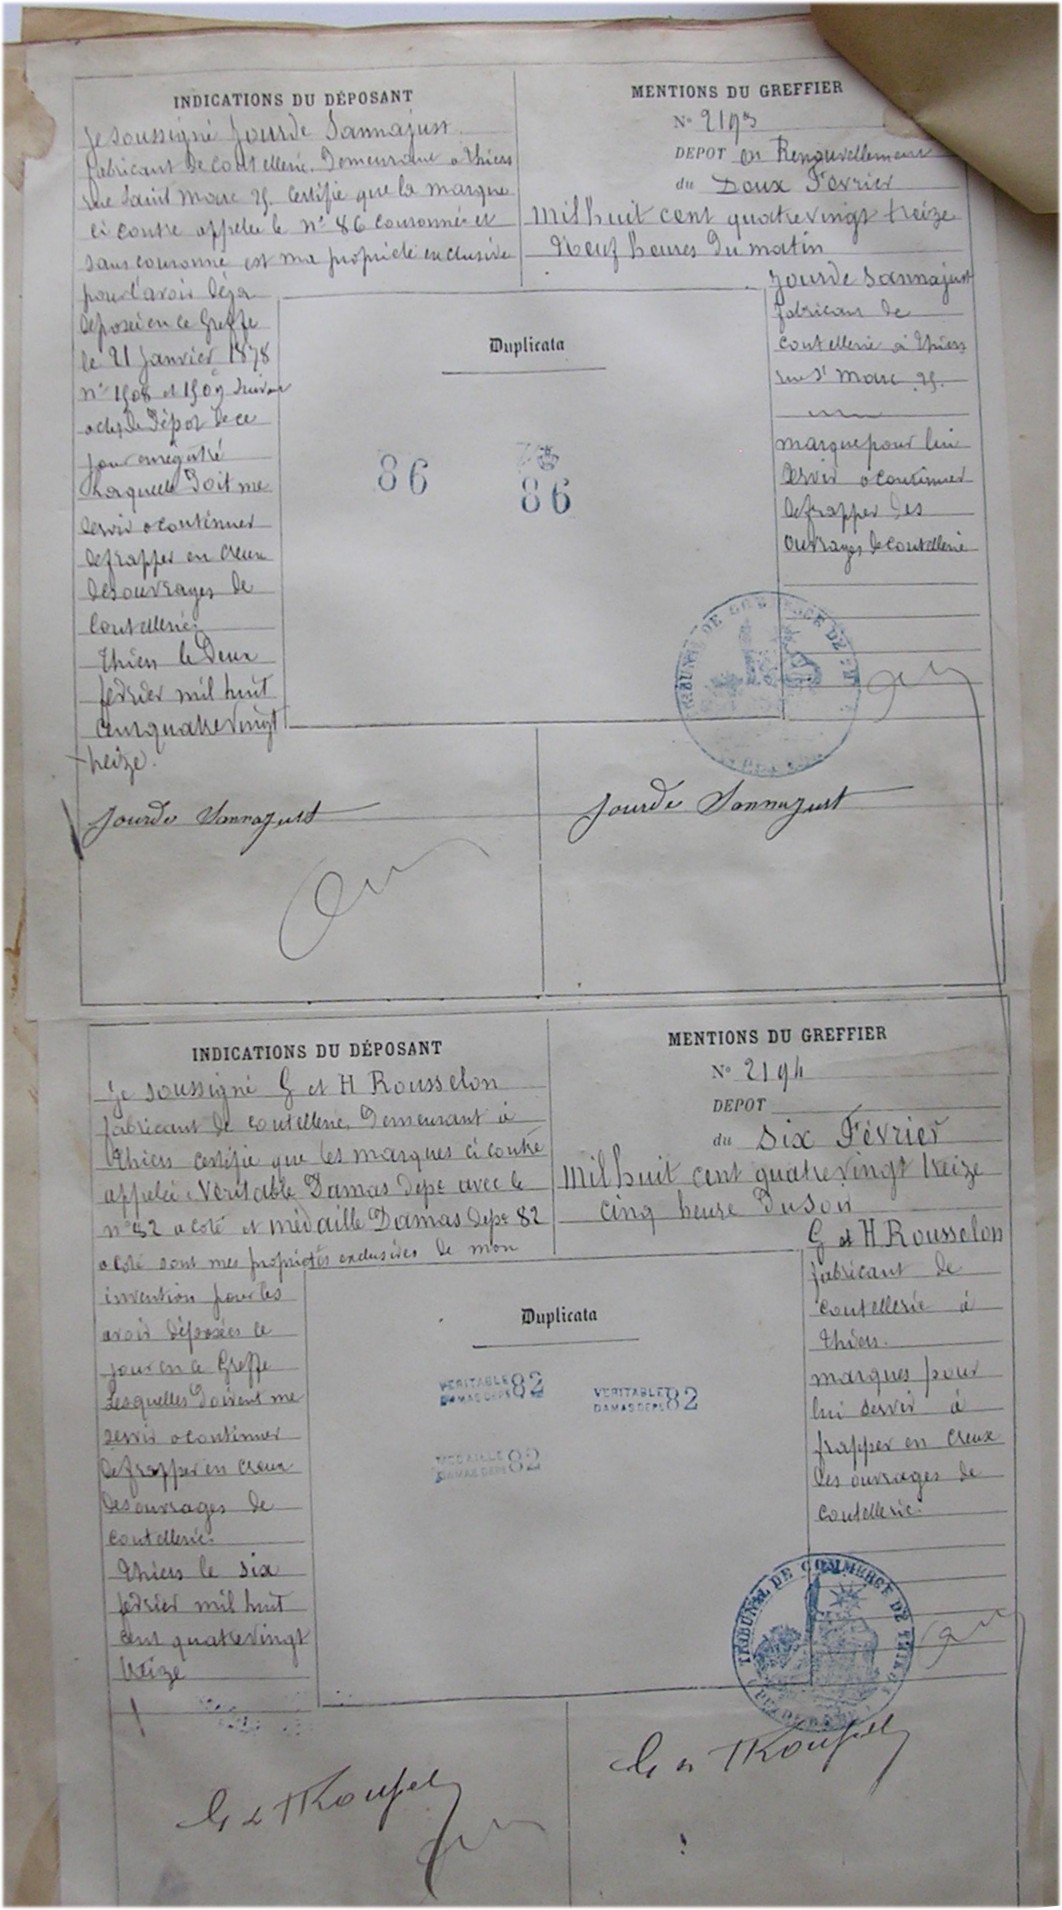 INDICATIONS DU DÉPOSANT
Je soussigné Jourde Sannajust
fabricant de coutellerie. Demeurant à Thiers
rue Saint Marc 25. Certifie que la marque
ci contre appelée le n° 86 couronné et
sans couronne est ma propriété exclusive
pour l'avoir déjà
déposée en ce Greffe
le 21 Janvier 1878
n° 1508 et 1509 suivant
actes de Dépôt de ce
jour enregistré
Laquelle doit me
servir a continuer
de frapper en creux
des ouvrages de
Coutellerie.
Thiers le Deux
fevrier mil huit
cent quatre vingt
treize.
Jourde Sannajust
MENTIONS DU GREFFIER
N° 2193
DEPOT en Renouvellement
du Deux Février
Mil huit cent quatre vingt treize
Neuf heures du matin
Jourde Sannajust
fabricant de
coutellerie à Thiers
rue St Marc 25.
marque pour lui
servir a continuer
de frapper des
ouvrages de coutellerie
Duplicata
86
86
TRIBUNAL DE COMMERCE DE
Jourde Sannajust
INDICATIONS DU DÉPOSANT
Je soussigné G et H Rousselon
fabricant de coutellerie, Demeurant à
Thiers certifie que les marques ci contre
appelée Véritable Damas Depé avec le
n° 82 a coté et médaille Damas Depé 82
a coté sont mes propriétés exclusives de mon
invention pour les
avoir déposées ce
jour en ce Greffe
Lesquelles doivent me
servir a continuer
de frapper en creux
des ouvrages de
coutellerie.
Thiers le six
fevrier mil huit
cent quatre vingt
treize
MENTIONS DU GREFFIER
N° 2194
DEPOT
du Six Février
Mil huit cent quatre vingt treize
cinq heure du soir
G et H Rousselon
fabricant de
coutellerie à
Thiers.
marques pour
lui servir à
frapper en creux
des ouvrages de
coutellerie.
Duplicata
VERITABLE 82
DAMAS DEPÉ
VERITABLE 82
DAMAS DEPÉ
MEDAILLE 82
DAMAS DEPÉ
TRIBUNAL DE COMMERCE DE THIERS
G & H Rousselon
G & H Rousselon